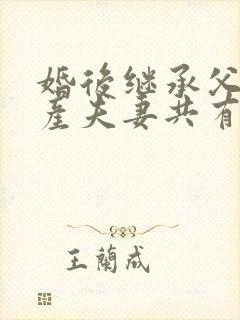 婚後继承父
産夫妻共有
王蘭成